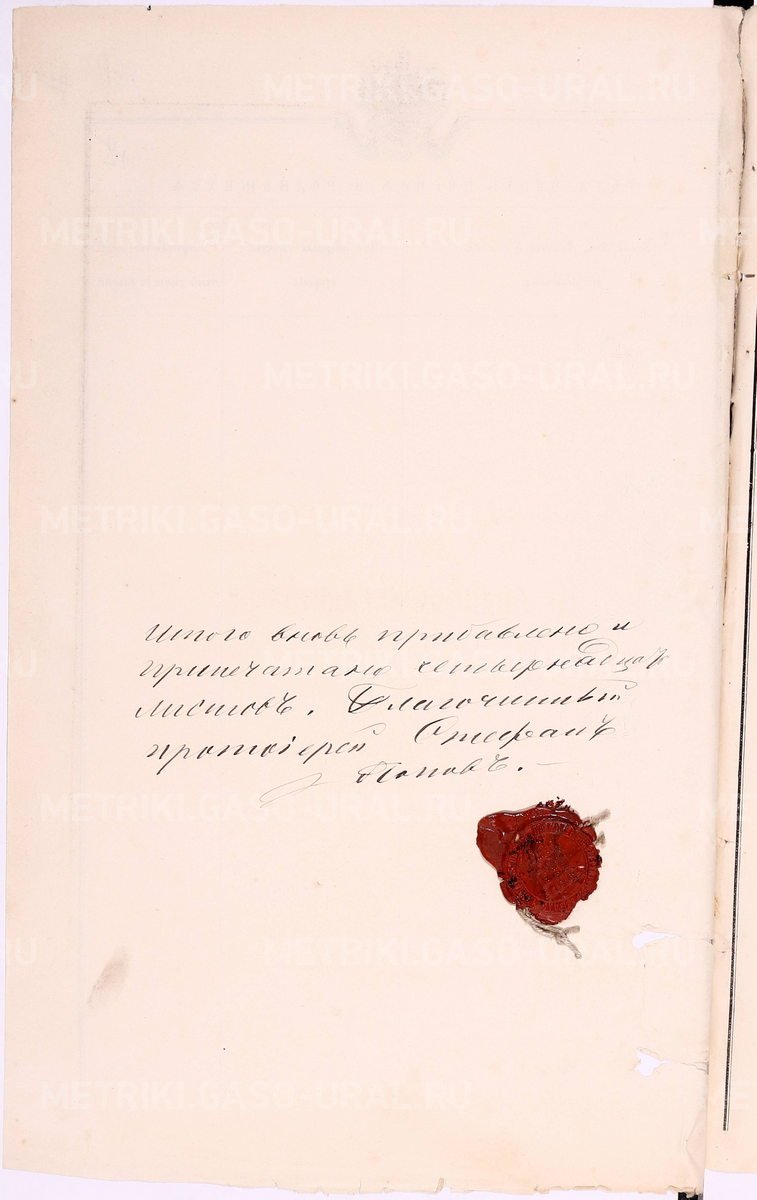 Итого вновь прибавлено и
припечатано четырнадцать
листовъ. Благочинный
протоіерей Стефанъ
Поповъ.
METRIKI.GASO-URAL.RU